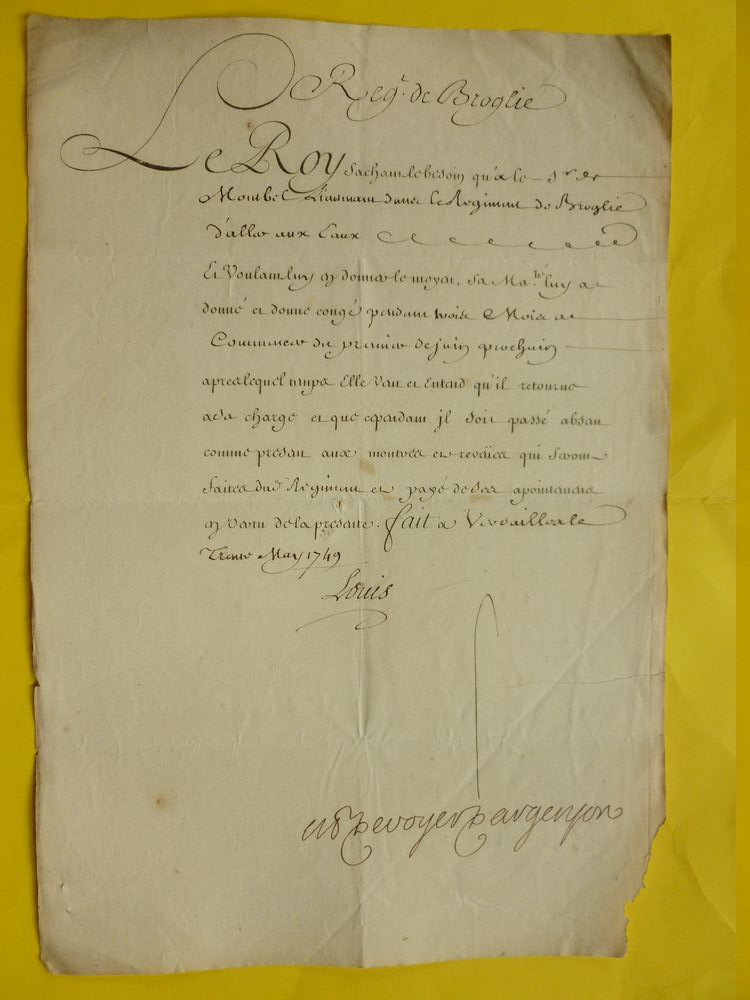 Regt. de Broglie
Le Roy sachant le besoin qu'a le Sr. de
Monbel Lieutenant dans le Regiment de Broglie
d'aller aux Eaux
Et Voulant luy en donner le moyen, Sa Ma.té luy a
donné et donne congé pendant trois Mois a
Commencer du premier de juin prochain
apres lequel temps Elle Veut et Entend qu'il retourne
a sa charge et que cependant jl soit passé absent
comme present aux montres et reveües qui seront
faites dud. Regiment et payé de ses apointements
en vertu de la presente. fait a Versailles le
Trente May 1749
Louis
M P De voyer D'argenson